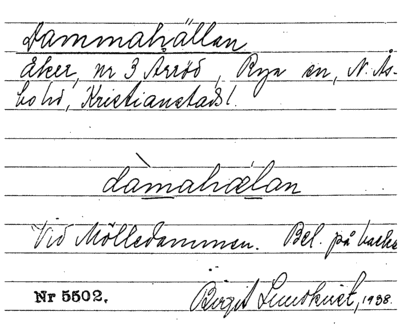 Dammahällan
åker, nr 3 Arröd, Rya sn, N. Ås-
bohd, Kristianstads l.
dàmahælan
Vid Mölledammen. Bel. på backe
Nr 5502. Birgit Lundkvist, 1938.